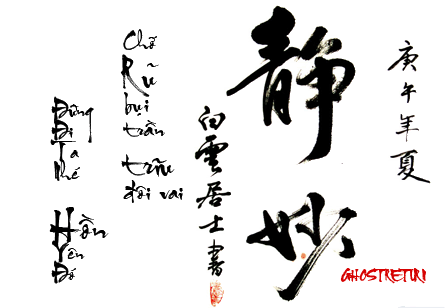 庚午年夏
静妙
白雲居士書
Chỗ
Rũ
bụi
trần
trĩu
đôi vai
Đừng
Đi
Ta
Nhé
Hồn
Yên
Đó
GHOSTRETURI